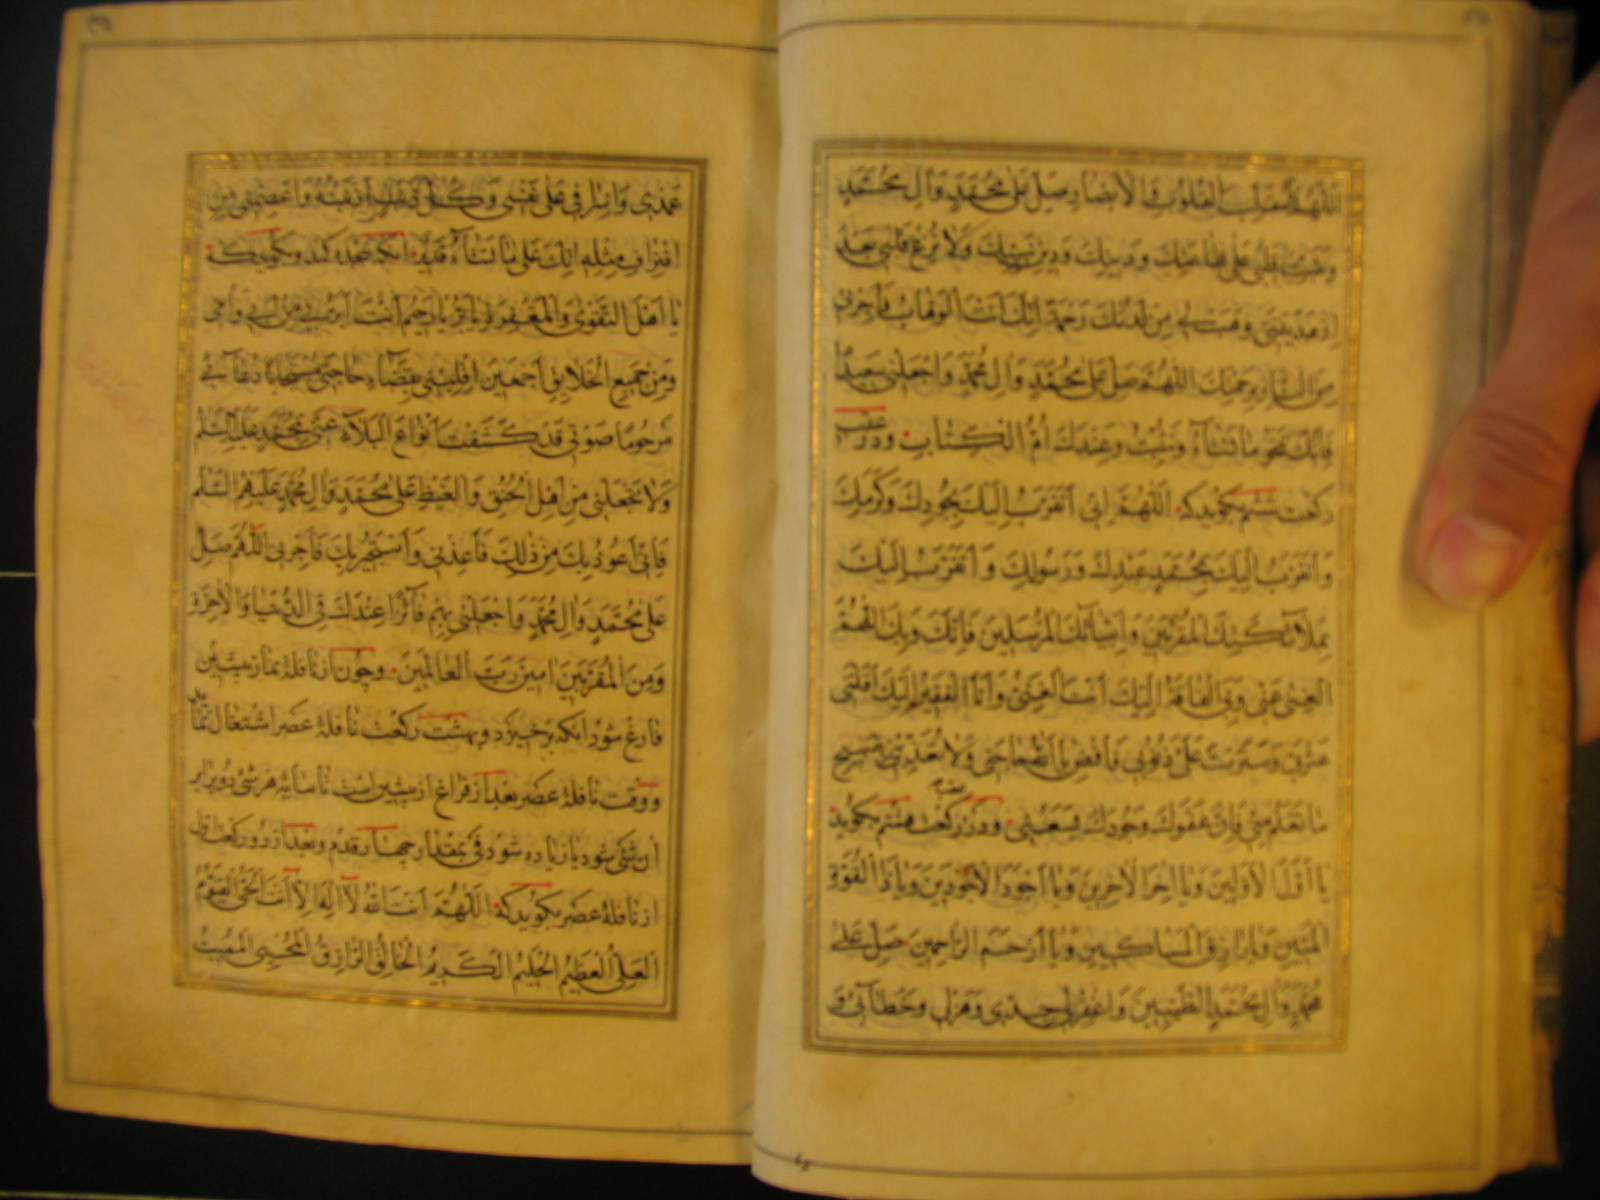 اللهم مقلب القلوب والابصار صل على محمد وال محمد
وثبت قلبي على طاعتك ودينك ودين نبيك ولا تزغ قلبي بعد
اذ هديتني وهب لي من لدنك رحمة انك انت الوهاب فاجرني
من النار برحمتك اللهم صل على محمد وال محمد واجعلني سعيدا
فانك تمحو ما تشاء وتثبت وعندك ام الكتاب ودر عقب
ركعت ششم بگويد كه اللهم اني اتقرب اليك بجودك وكرمك
واتقرب اليك بمحمد عبدك ورسولك واتقرب اليك
بملائكتك المقربين وانبيائك المرسلين فانك وبك اللهم
الغنى عني وبي الفاقة اليك انت الغني وانا الفقير اليك اقلتني
عثرتي وسترت على ذنوبي فاقض يا الله حاجتي ولا تعذبني بقبيح
ما تعلم مني فان عفوك وجودك يسعني ودر عقب ركعت هشتم بگويد
يا اول الاولين ويا اخر الاخرين ويا اجود الاجودين ويا ذا القوة
المتين ويا رازق المساكين ويا ارحم الراحمين صل على
محمد وال محمد الطيبين واغفر لي جدي وهزلي وخطائي و
عمدي واسرافي على نفسي وكل ذنب اذنبته واعصمني من
اقتراف مثله انك على ما تشاء قدير انكه سجده كند وبگويد كه
يا اهل التقوى والمغفرة يا بر يا رحيم انت ابر بي من ابي وامي
ومن جميع الخلايق اجمعين اقلبني بقضاء حاجتي مستجابا دعائي
مرحوما صوتي قد كشفت انواع البلاء عني بمحمد عليه السلم
ولا تجعلني من اهل الحنق والغيظ على محمد وال محمد عليهم السلم
فاني اعوذ بك من ذلك فاعذني واستجير بك فاجرني اللهم صل
على محمد وال محمد واجعلني بهم فائزا عندك في الدنيا والاخرة
ومن المقربين امين رب العالمين وچون از نافلهٔ نماز پيشين
فارغ شود انكه برخيزد وبهشت ركعت نافلهٔ عصر اشتغال نمايد
ووقت نافلهٔ عصر بعد از فراغ از پيشين است تا سايهٔ هر شئ دو برابر
ان شئ شود يا زياده شود في بمقدار چهار قدم وبعد از دو ركعت اول
از نافلهٔ عصر بگويد كه اللهم انت الله لا اله الا انت الحي القيوم
العلي العظيم الحليم الكريم الخالق الرازق المحيي المميت